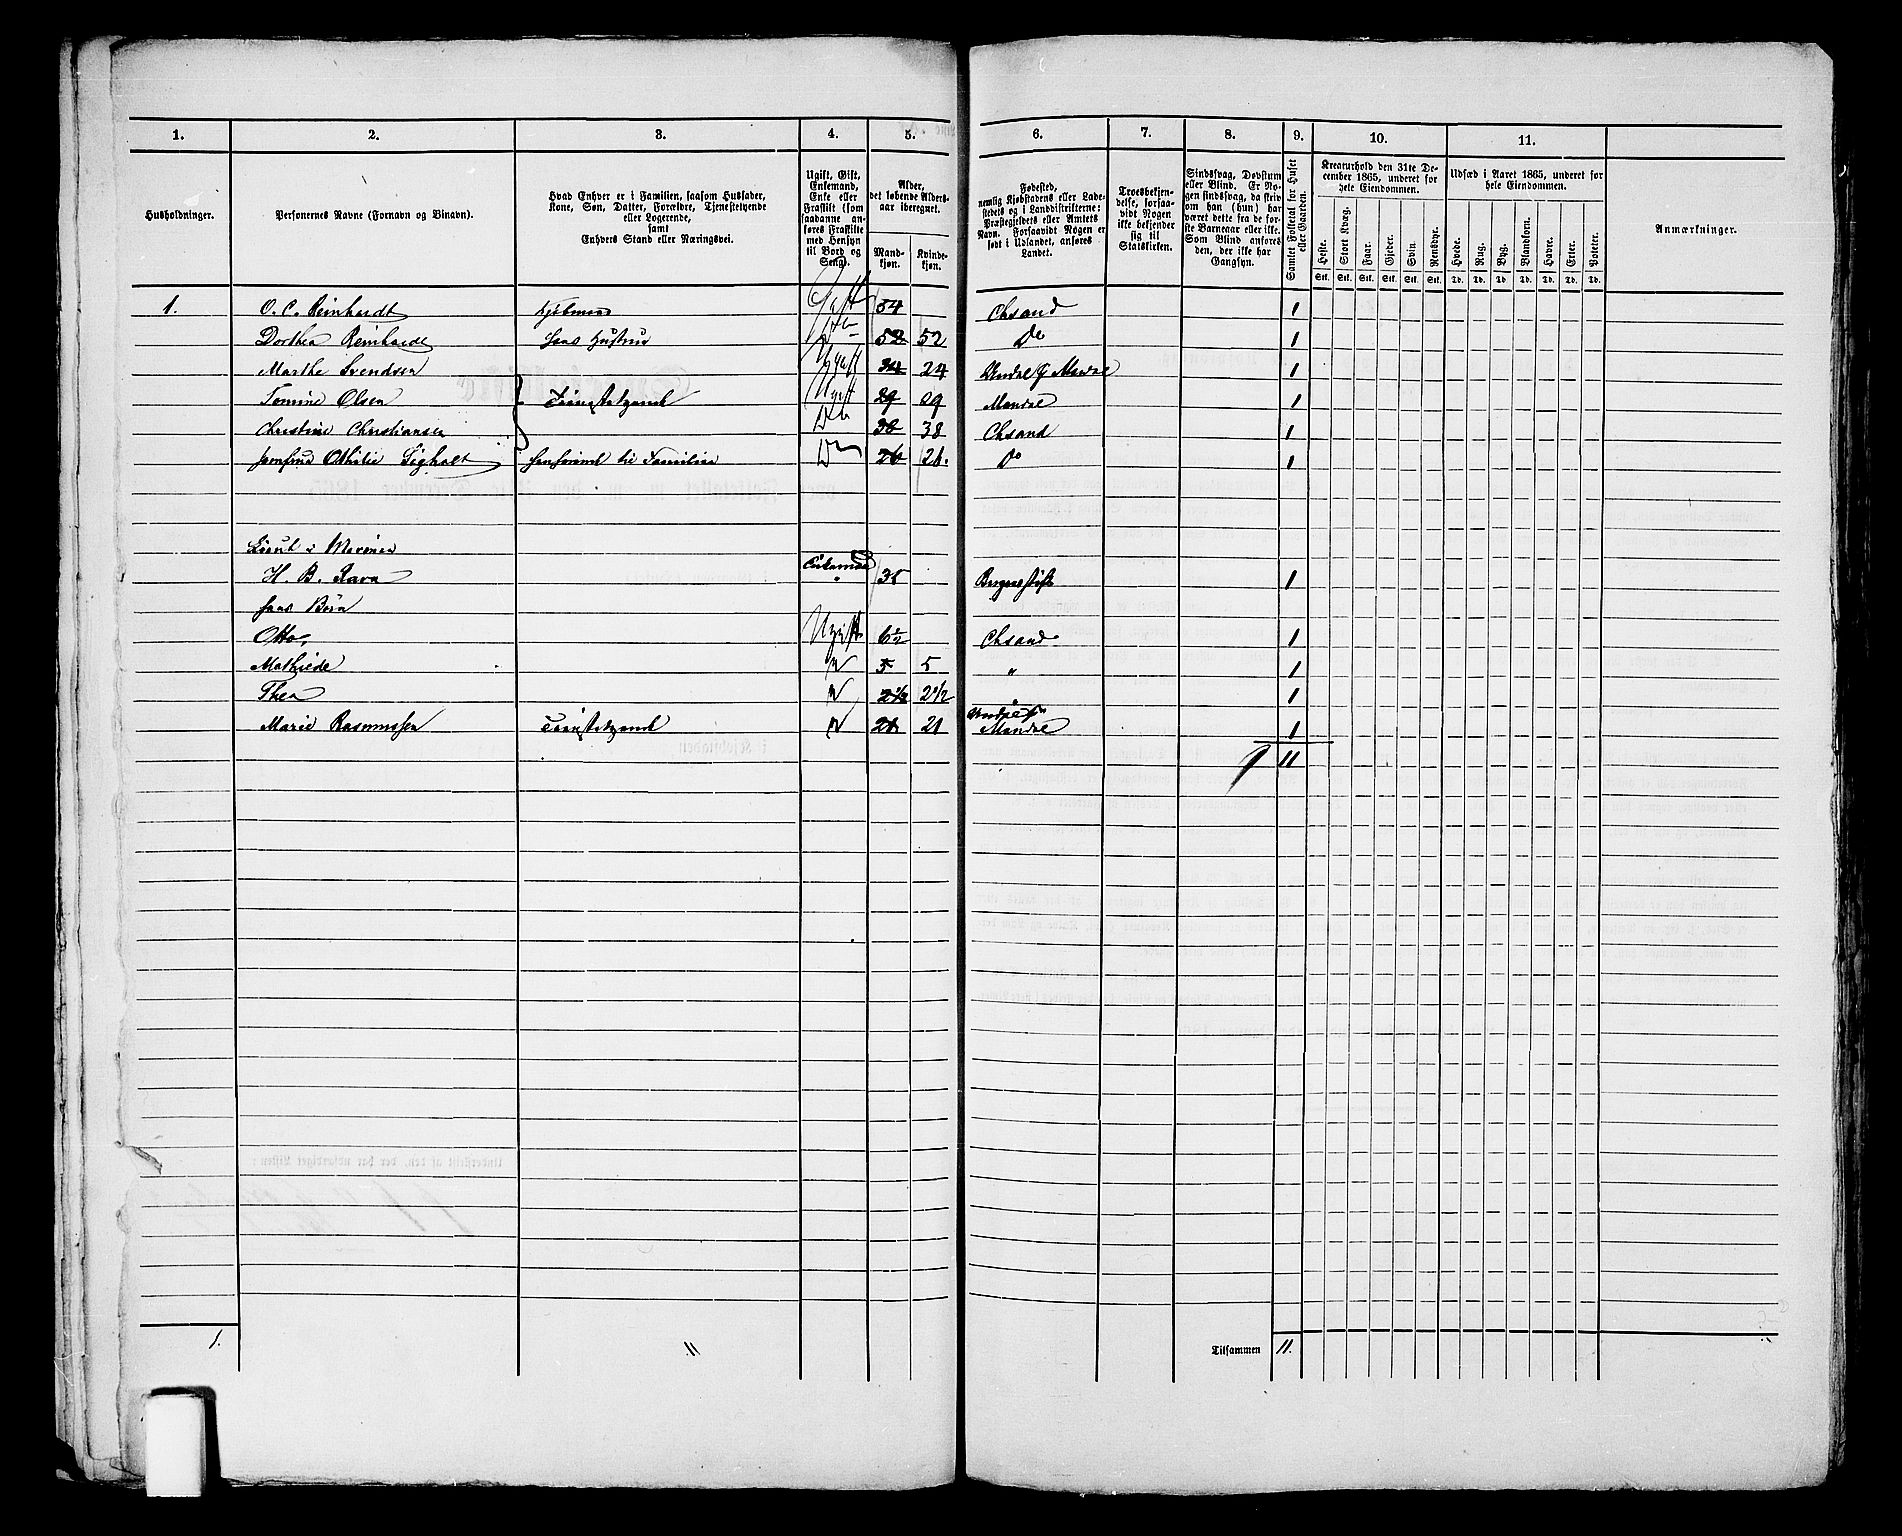 1. 2. 3. 4. 5. 6. 7. 8. 9. 10. 11.
Husholdninger.
Personernes Navne (Fornavn og Binavn).
Hvad Enhver er i Familien, saasom Husfader,
Kone, Søn, Datter, Forældre, Tjenestetyende
eller Logerende,
samt
Enhvers Stand eller Næringsvei.
Ugift, Gift,
Enkemand,
Enke eller
Fraskilt (som
saadanne an-
føres Fraskilte
med Hensyn
til Bord og
Seng).
Alder,
det løbende Alders-
aar iberegnet.
Mand-
kjøn.
Kvinde-
kjøn.
Fødested,
nemlig Kjøbstadens eller Lade-
stedets og i Landdistrikterne:
Præstegjeldets eller Amtets
Navn. Forsaavidt Nogen er
født i Udlandet, anføres
Landet.
Troesbekjen-
delse, forsaa-
vidt Nogen
ikke bekjender
sig til
Statskirken.
Sindssvag, Døvstum
eller Blind. Er No-
gen sindssvag, da skriv
om han (hun) har
været dette fra de før-
ste Barneaar eller ikke.
Som Blind anføres
den, der ikke har
Gangsyn.
Samlet Folketal for Huset
eller Gaarden.
Kreaturhold den 31te De-
cember 1865, underet for
hele Eiendommen.
Heste. Stort Kvæg. Faar. Gjeder. Svin. Rensdyr.
Stk. Stk. Stk. Stk. Stk. Stk.
Udsæd i Aaret 1865, underet for
hele Eiendommen.
Hvede. Rug. Byg. Blandkorn. Havre. Erter. Poteter.
Td. Td. Td. Td. Td. Td. Td.
Anmærkninger.
1. O. C. Reinhardt Kjøbmand Gift 54 Chsand 1
Dorthea Reinhardt Hans Hustru Do 52 52 Do 1
Marthe Svendsen Ugift 24 24 Undal Mandal 1
Tomine Olsen Tjenestetyende Ugift 29 29 Mandal 1
Christine Christiansen Do 38 38 Chsand 1
Jomfru Othilie Do 26 26. Do 1
Lieut i Marinen
H. B. Ravn Enkemand 35 Bergens stift 1
hans Børn
Otto, Ugift 6½ Chsand 1
Mathilde " 5 5 " 1
Thea " 2½ 2½ " 1
Marie Rasmussen Tjenestetyende " 21 21 Undal Mandal 1
11
1. 11 Tilsammen 11.